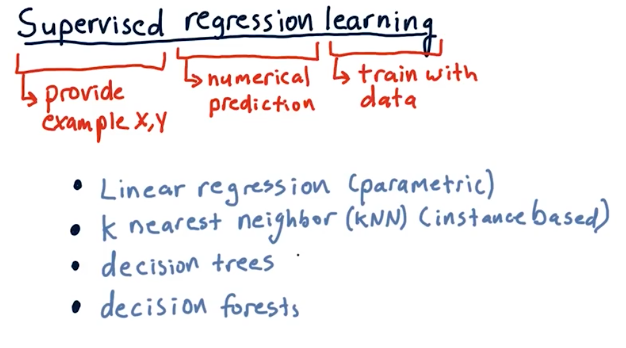 Supervised regression learning
provide example X,Y
numerical prediction
train with data
• Linear regression (parametric)
• k nearest neighbor (kNN) (instance based)
• decision trees
• decision forests